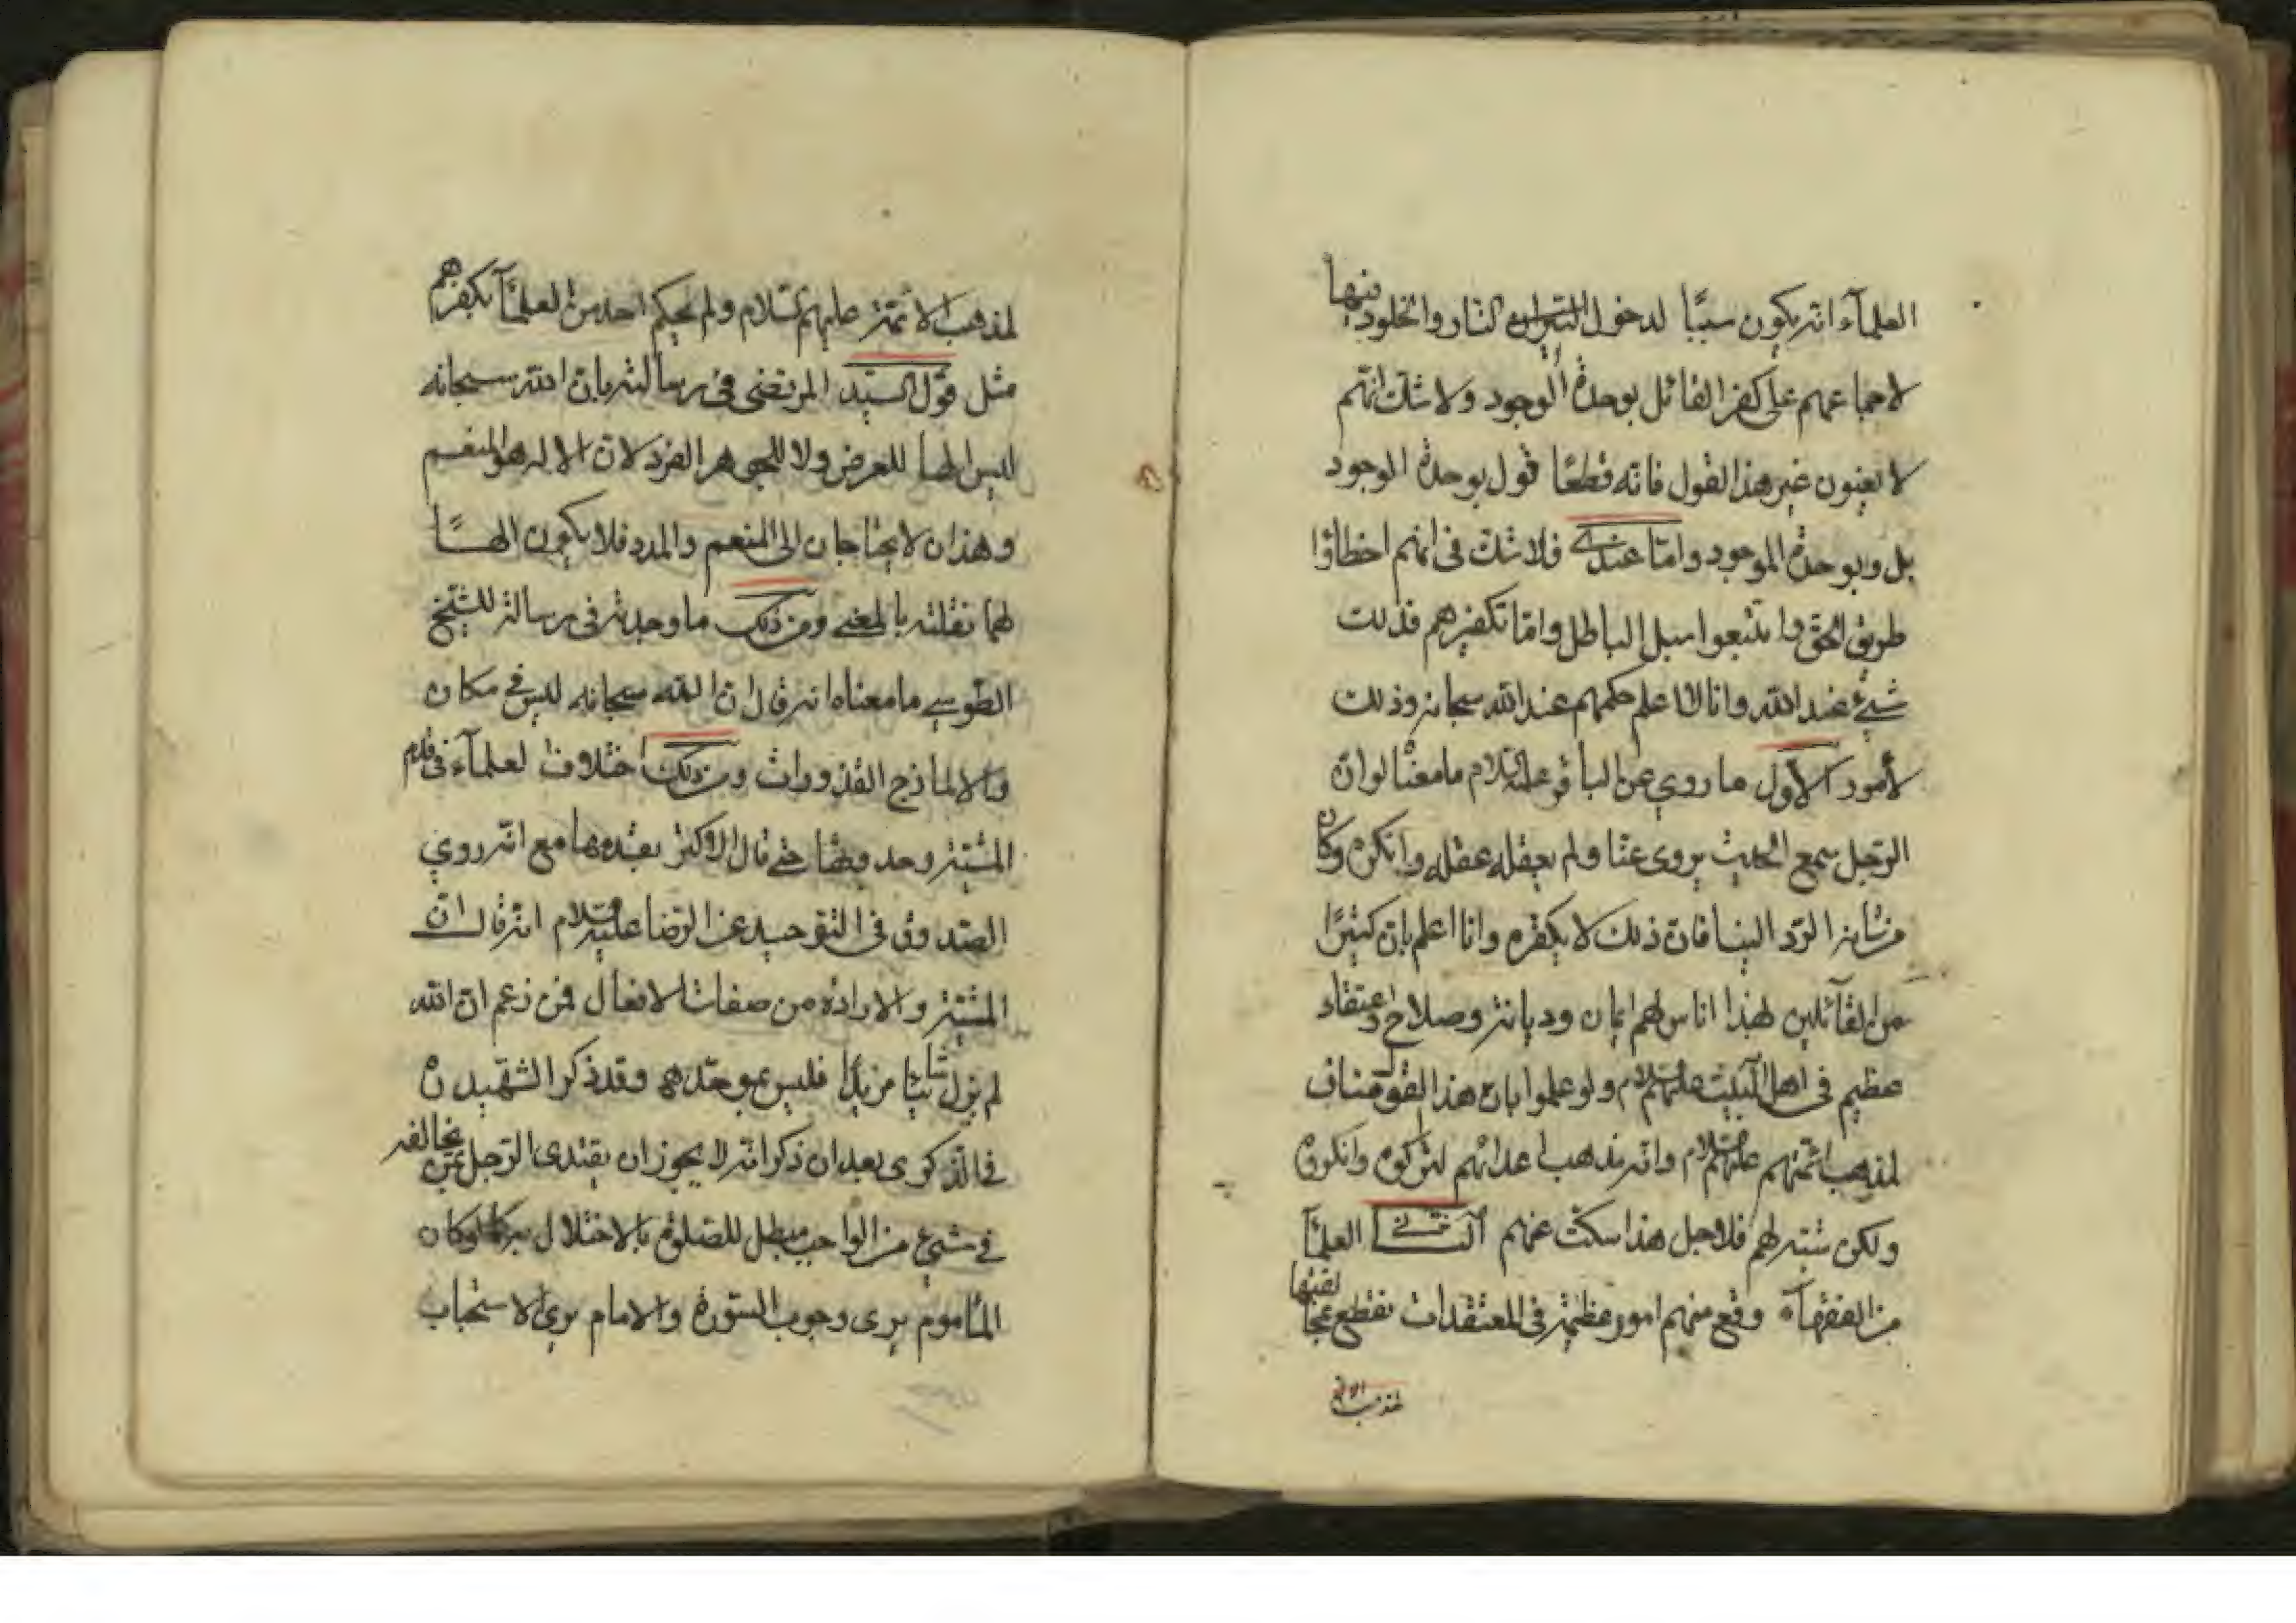 العلمآء انه يكون سببًا لدخول النار والخلود فيها
لاجماعهم على كفر القائل بوحدة الوجود ولا شك انهم
لا يعنون غير هذا القول فانه قطعًا قول بوحدة الوجود
بل وبوحدة الموجود وامّا عندي فلا شك فى انهم اخطاؤا
طريق الحق واتبعوا سبل الباطل وامّا تكفيرهم فذلك
شيء عند الله وانا لا اعلم حكمهم عند الله سبحانه وذلك
لأمور الأول ما روي عن الباقر عليه السلام ما معناه لو ان
الرجل سمع الحديث يروى عنا ولم يعقله عقله وانكره وكان
من شانه الرد الينا فان ذلك لا يكفره وانا اعلم بان كثيرًا
من القآئلين بهذا اناس لهم ايمان وديانة وصلاح واعتقاد
عظيم فى اهل البيت عليهم السلام ولو علموا بان هذا القول مناف
لمذهب ائمتهم عليهم السلام وانه مذهب اعدائهم لتركوه وانكروه
ولكن شبّه لهم فلاجل هذا سكت عنهم الثاني العلمآ
من الفقهآء وقع منهم امور عظيمة فى المعتقدات نقطع بمخالفتها
لمذهب الائمة
لمذهب الائمة عليهم السلام ولم يحكم احد من العلمآ بكفرهم
مثل قول السيد المرتضى فى رسالته بان الله سبحانه
ليس الها للعرض ولا للجوهر الفرد لان الاله هو المنعم
وهذان لا يحتاجان الى المنعم والمدد فلا يكون الهًا
لهما نقلته بالمعنى ومن ذلك ما وجدته فى رسالة للشيخ
الطوسي ما معناه انه قال ان الله سبحانه ليس في مكان
والا لمازج القذورات ومن ذلك اختلاف العلمآء فى قدم
المشية وحدوثها حتى قال الاكثر بقدمها مع انه روي
الصدوق فى التوحيد عن الرضا عليه السلام انه قال ان
المشية والارادة من صفات الافعال فمن زعم ان الله
لم يزل شائيا مريدًا فليس بموحد وقد ذكر الشهيد ره
في الذكرى بعد ان ذكر انه لا يجوز ان يقتدى الرجل بمن يخالفه
في شيء من الواجب مبطل للصلوة بالاخلال به كما لو كان
المأموم يرى وجوب السورة والامام يرى الاستحباب